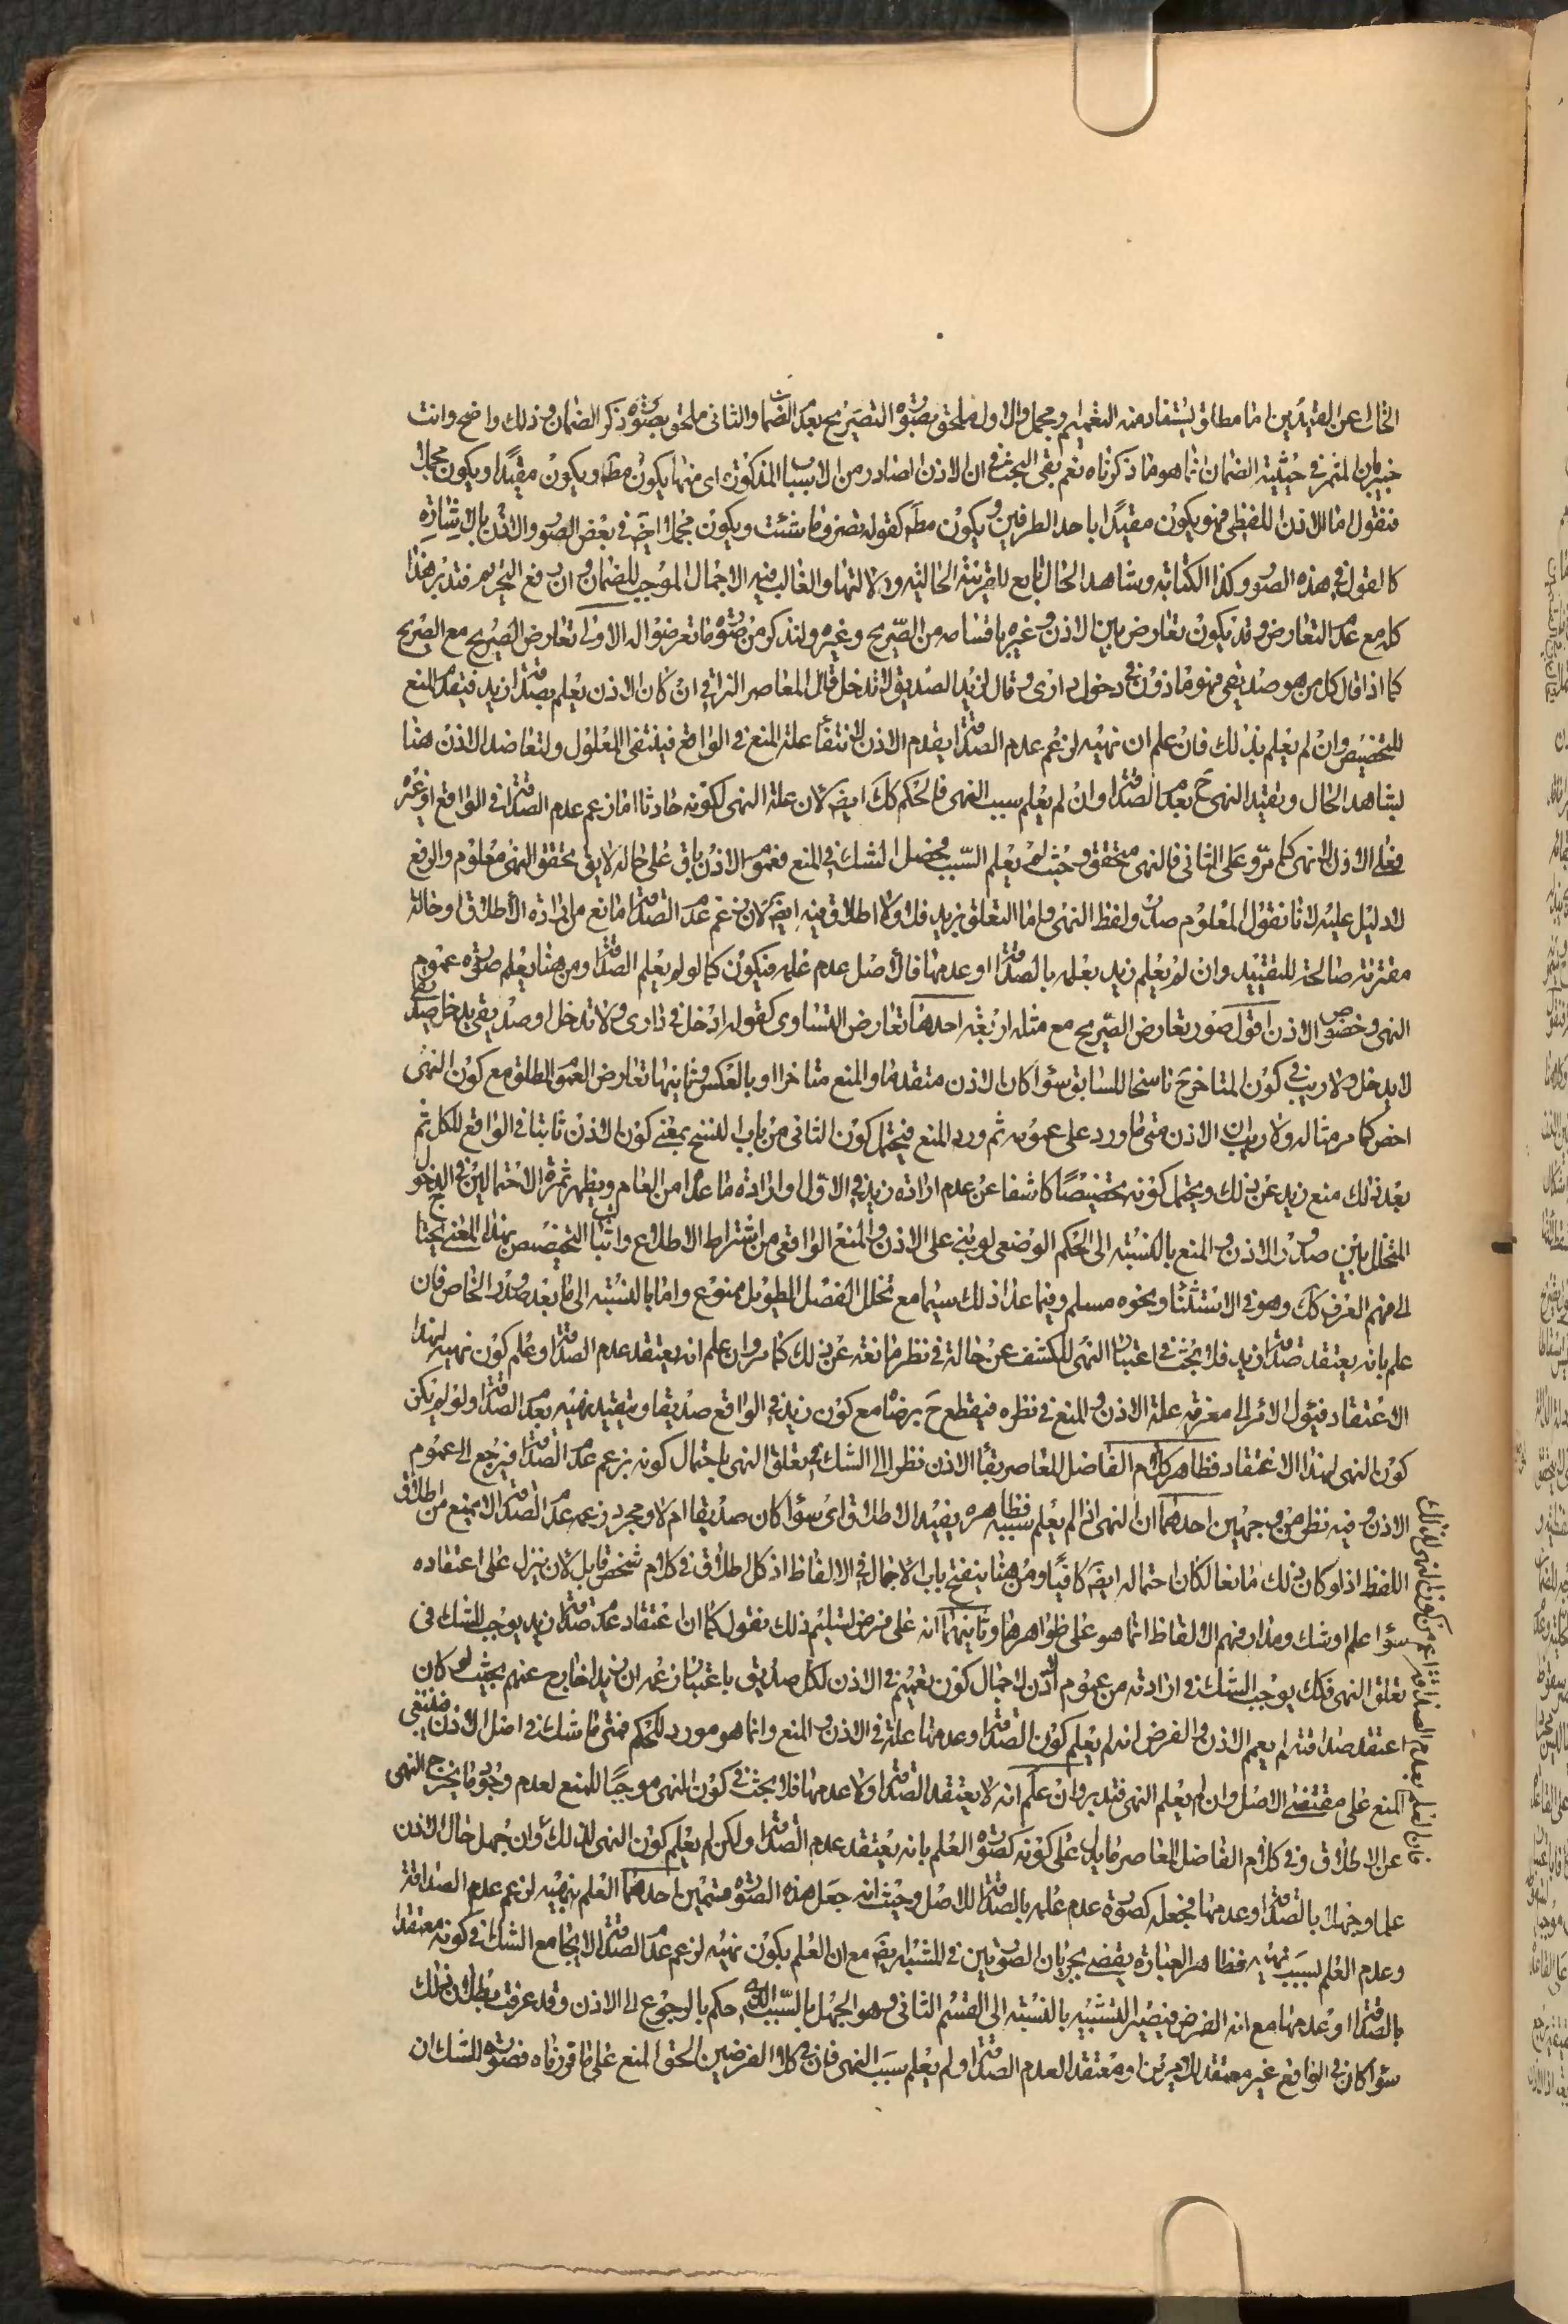 الخال عن القيدين اما مطلق يستفاد منه التعميم ومجمل والاول ملحق بصورة التصريح بعدم الضمان والثانى ملحق بصورة ذكر الضمان وذلك واضح وانت
خبير بان المثمر فى حيثية الضمان انما هو ما ذكرناه نعم بقى البحث فى ان الاذن الصادر من الاسباب المذكورة اى منها يكون مطه ويكون مقيدا ويكون مجملا
فنقول اما الاذن اللفظى فهو يكون مقيدا باحد الطرفين ويكون مطه كقوله تصرف ما شئت ويكون مجملا ايضه فى بعض الصور والاذن بالاشارة
كالقول فى هذه الصور وكذا الكتابة وشاهد الحال تابع للقرينة الحالية ودلالتها والغالب فيه الاجمال الموجب للضمان وان رفع التحريم فتدبر هذا
كله مع عدم التعارض وقد يكون تعارض بين الاذن وغيره باقسامه من الصريح وغيره ولنذكر من صوره ما تعرضوا له الاولى تعارض الصريح مع الصريح
كما اذا قال كل من هو صديقى فهو ماذون فى دخول دارى وقال لزيد الصديق لا تدخل قال المعاصر النراقى ان كان الاذن يعلم بصداقة زيد فيقدم المنع
للتخصيص وان لم يعلم بذلك فان علم ان نهيه لزعم عدم الصداقة يقدم الاذن لانتفاء علة المنع فى الواقع فينتفى المعلول ولتعاضد الاذن هنا
بشاهد الحال وتقيد النهى ح بعدم الصداقة وان لم يعلم سبب النهى فالحكم كك ايضه لان علة النهى لكونه حادثا اما زعم عدم الصداقة فى الواقع او غيره
فعلى الاول لا نهى كما مر وعلى الثانى فالنهى متحقق وحيث لم يعلم السبب فيحصل الشك فى المنع فعموم الاذن باق على حاله لا يق تحقق النهى معلوم والرفع
لا دليل عليه لانا نقول المعلوم صدور لفظ النهى واما التعلق بزيد فلا ولا اطلاق فيه ايضه لان زعم عدم الصداقة مانع من ارادة الاطلاق او حالة
مقترنة صالحة للتقييد وان لم يعلم زيد بعلمه بالصداقة او عدمها فالاصل عدم علمه فيكون كما لو لم يعلم الصداقة ومن هنا يعلم صورة عموم
النهى وخصوص الاذن اقول صور تعارض الصريح مع مثله اربعة احدها تعارض التساوى كقوله ادخل فى دارى ولا تدخل او صديقى يدخل صديقى
لا يدخل ولا ريب فى كون المتاخر ح ناسخا للسابق سواء كان الاذن متقدما والمنع متاخرا او بالعكس وثانيها تعارض العموم المطلق مع كون النهى
اخص كما مر مثاله ولا ريب ان الاذن متى ما ورد على عمومه ثم ورد المنع فيحتمل كون الثانى من باب النسخ بمعنى كون الاذن ثابتا فى الواقع للكل ثم
بعد ذلك منع زيد عن ذلك ويحتمل كونه تخصيصا كاشفا عن عدم ارادة زيد فى الاول وارادة ما عدا من العام ويظهر ثمرة الاحتمالين فى الدخول
المتخلل بين صدور الاذن والمنع بالنسبة الى الحكم الوضعى لو بنى على الاذن والمنع الواقعى من اشتراط الاطلاع واثبات التخصيص بهذا المعنى يحتاج
الى فهم العرف كك وهو فى الاستثناء ونحوه مسلم وفيما عدا ذلك سيما مع تخلل الفصل الطويل ممنوع واما بالنسبة الى ما بعد صدور الخاص فان
علم بانه يعتقد صداقة زيد فلا بحث فى اعتبار النهى للكشف عن حالة فى نظر مانعة عن ذلك كما مر وان علم انه يعتقد عدم الصداقة وعلم كون نهيه لهذا
الاعتقاد فيئول الامر الى معرفة علة الاذن والمنع فى نظره فيقطع ح برضاه مع كون زيد فى الواقع صديقا ويتقيد نهيه بعدم الصداقة ولو لم يكن
كون النهى لهذا الاعتقاد فظاهر كلام الفاضل المعاصر بقاء الاذن نظرا الى الشك فى تعلق النهى باحتمال كونه بزعم عدم الصداقة فيرجع الى عموم
الاذن وفيه نظر من وجهين احدهما ان النهى اذا لم يعلم سببه فظاهره يفيد الاطلاق اى سواء كان صديقا ام لا ومجرد زعمه عدم الصداقة لا يمنع من اطلاق
اللفظ اذ لو كان ذلك مانعا لكان احتماله ايضه كافيا ومن هنا ينفتح باب الاجمال فى الالفاظ اذ كل اطلاق فى كلام شخص قابل لان ينزل على اعتقاده
سواء علم او شك ومدار فهم الالفاظ انما هو على ظواهرها وثانيهما انه على فرض تسليم ذلك نقول كما ان اعتقاد عدم صداقة زيد يوجب الشك فى
تعلق النهى فكك يوجب الشك فى ارادته من عموم الاذن لاحتمال كون تعميم فى الاذن لكل صديق باعتبار زعمه ان زيدا خارج عنهم بحيث لو كان
اعتقد صداقته لم يعمم الاذن والفرض انه لم يعلم كون الصداقة وعدمها علة فى الاذن والمنع وانما هو مورد للحكم فمتى ما شك فى اصل الاذن فينبغى
المنع على مقتضى الاصل وان لم يعلم النهى فتدبر وان علم انه لا يعتقد الصداقة ولا عدمها فلا بحث فى كون النهى موجبا للمنع لعدم وجود ما يخرج النهى
عن الاطلاق وفى كلام الفاضل المعاصر ما يدل على كونه كصورة العلم بانه يعتقد عدم الصداقة ولكن لم يعلم كون النهى لذلك وان جهل حال الاذن
علما وجهلا بالصداقة وعدمها فجعله كصورة عدم علمه بالصداقة للاصل وحيث انه جعل هذه الصورة قسمين احدهما العلم بنهيه لزعم عدم الصداقة
وعدم العلم بسبب نهيه فظاهر العبارة يقضى بجريان الصورتين فى المشبه ايضه مع ان العلم بكون نهيه لزعم عدم الصداقة لا يجامع الشك فى كونه معتقدا
بالصداقة او عدمها مع انه الفرض فيصير التشبيه بالنسبة الى القسم الثانى وهو الجهل بالسبب الذى حكم بالرجوع الى الاذن وقد عرفت بطلان ذلك
سواء كان فى الواقع غير معتقد للامرين او معتقدا لعدم الصداقة ولم يعلم سبب النهى فان فى كلا الفرضين الحق المنع على ما قررناه فصورة الشك ان
فان العلم بعدم الصداقة اعم من كون النهى لذلك